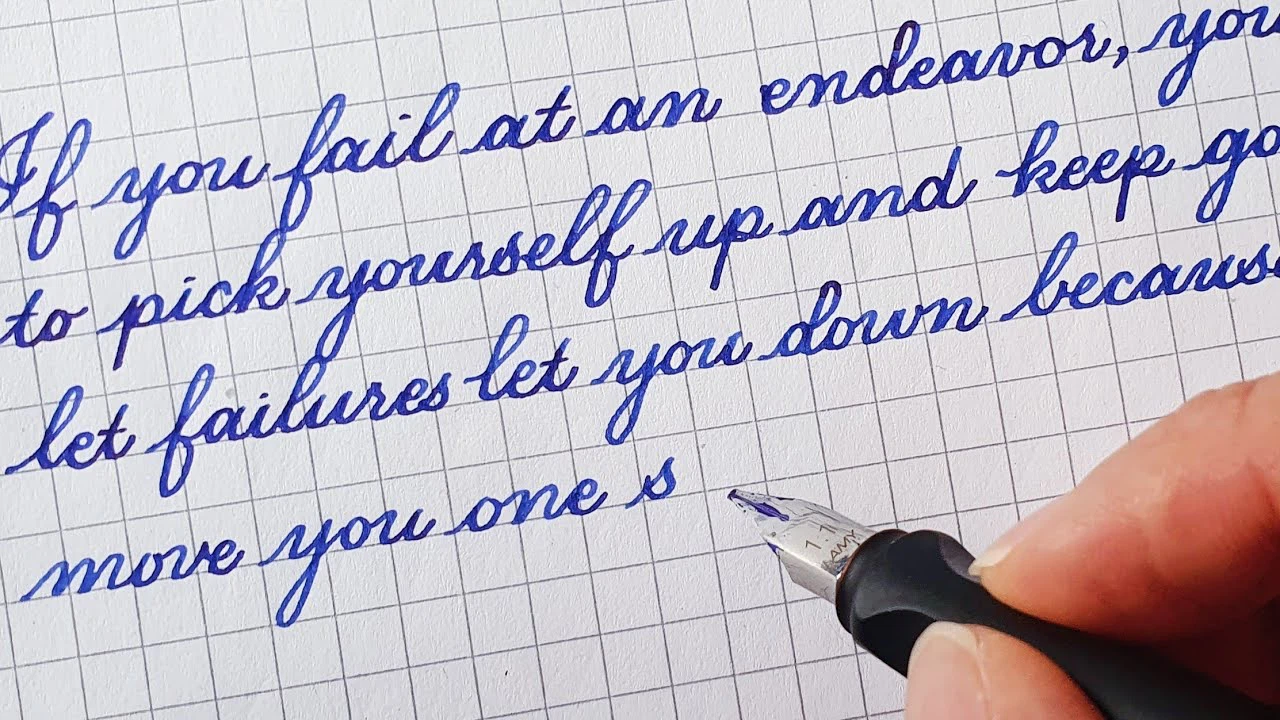 If you fail at an endeavor, you
to pick yourself up and keep go
let failures let you down because
move you one s
1.1
LAMY